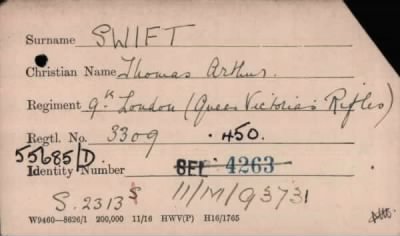 Surname SWIFT
Christian Name Thomas Arthur.
Regiment 9th London (Queen Victoria's Rifles)
Regtl. No. 3309 .450.
55685/D
Identity Number BEL 4263
S.2313 11/M/93731
W9460—8626/1 200,000 11/16 HWV(P) H16/1765